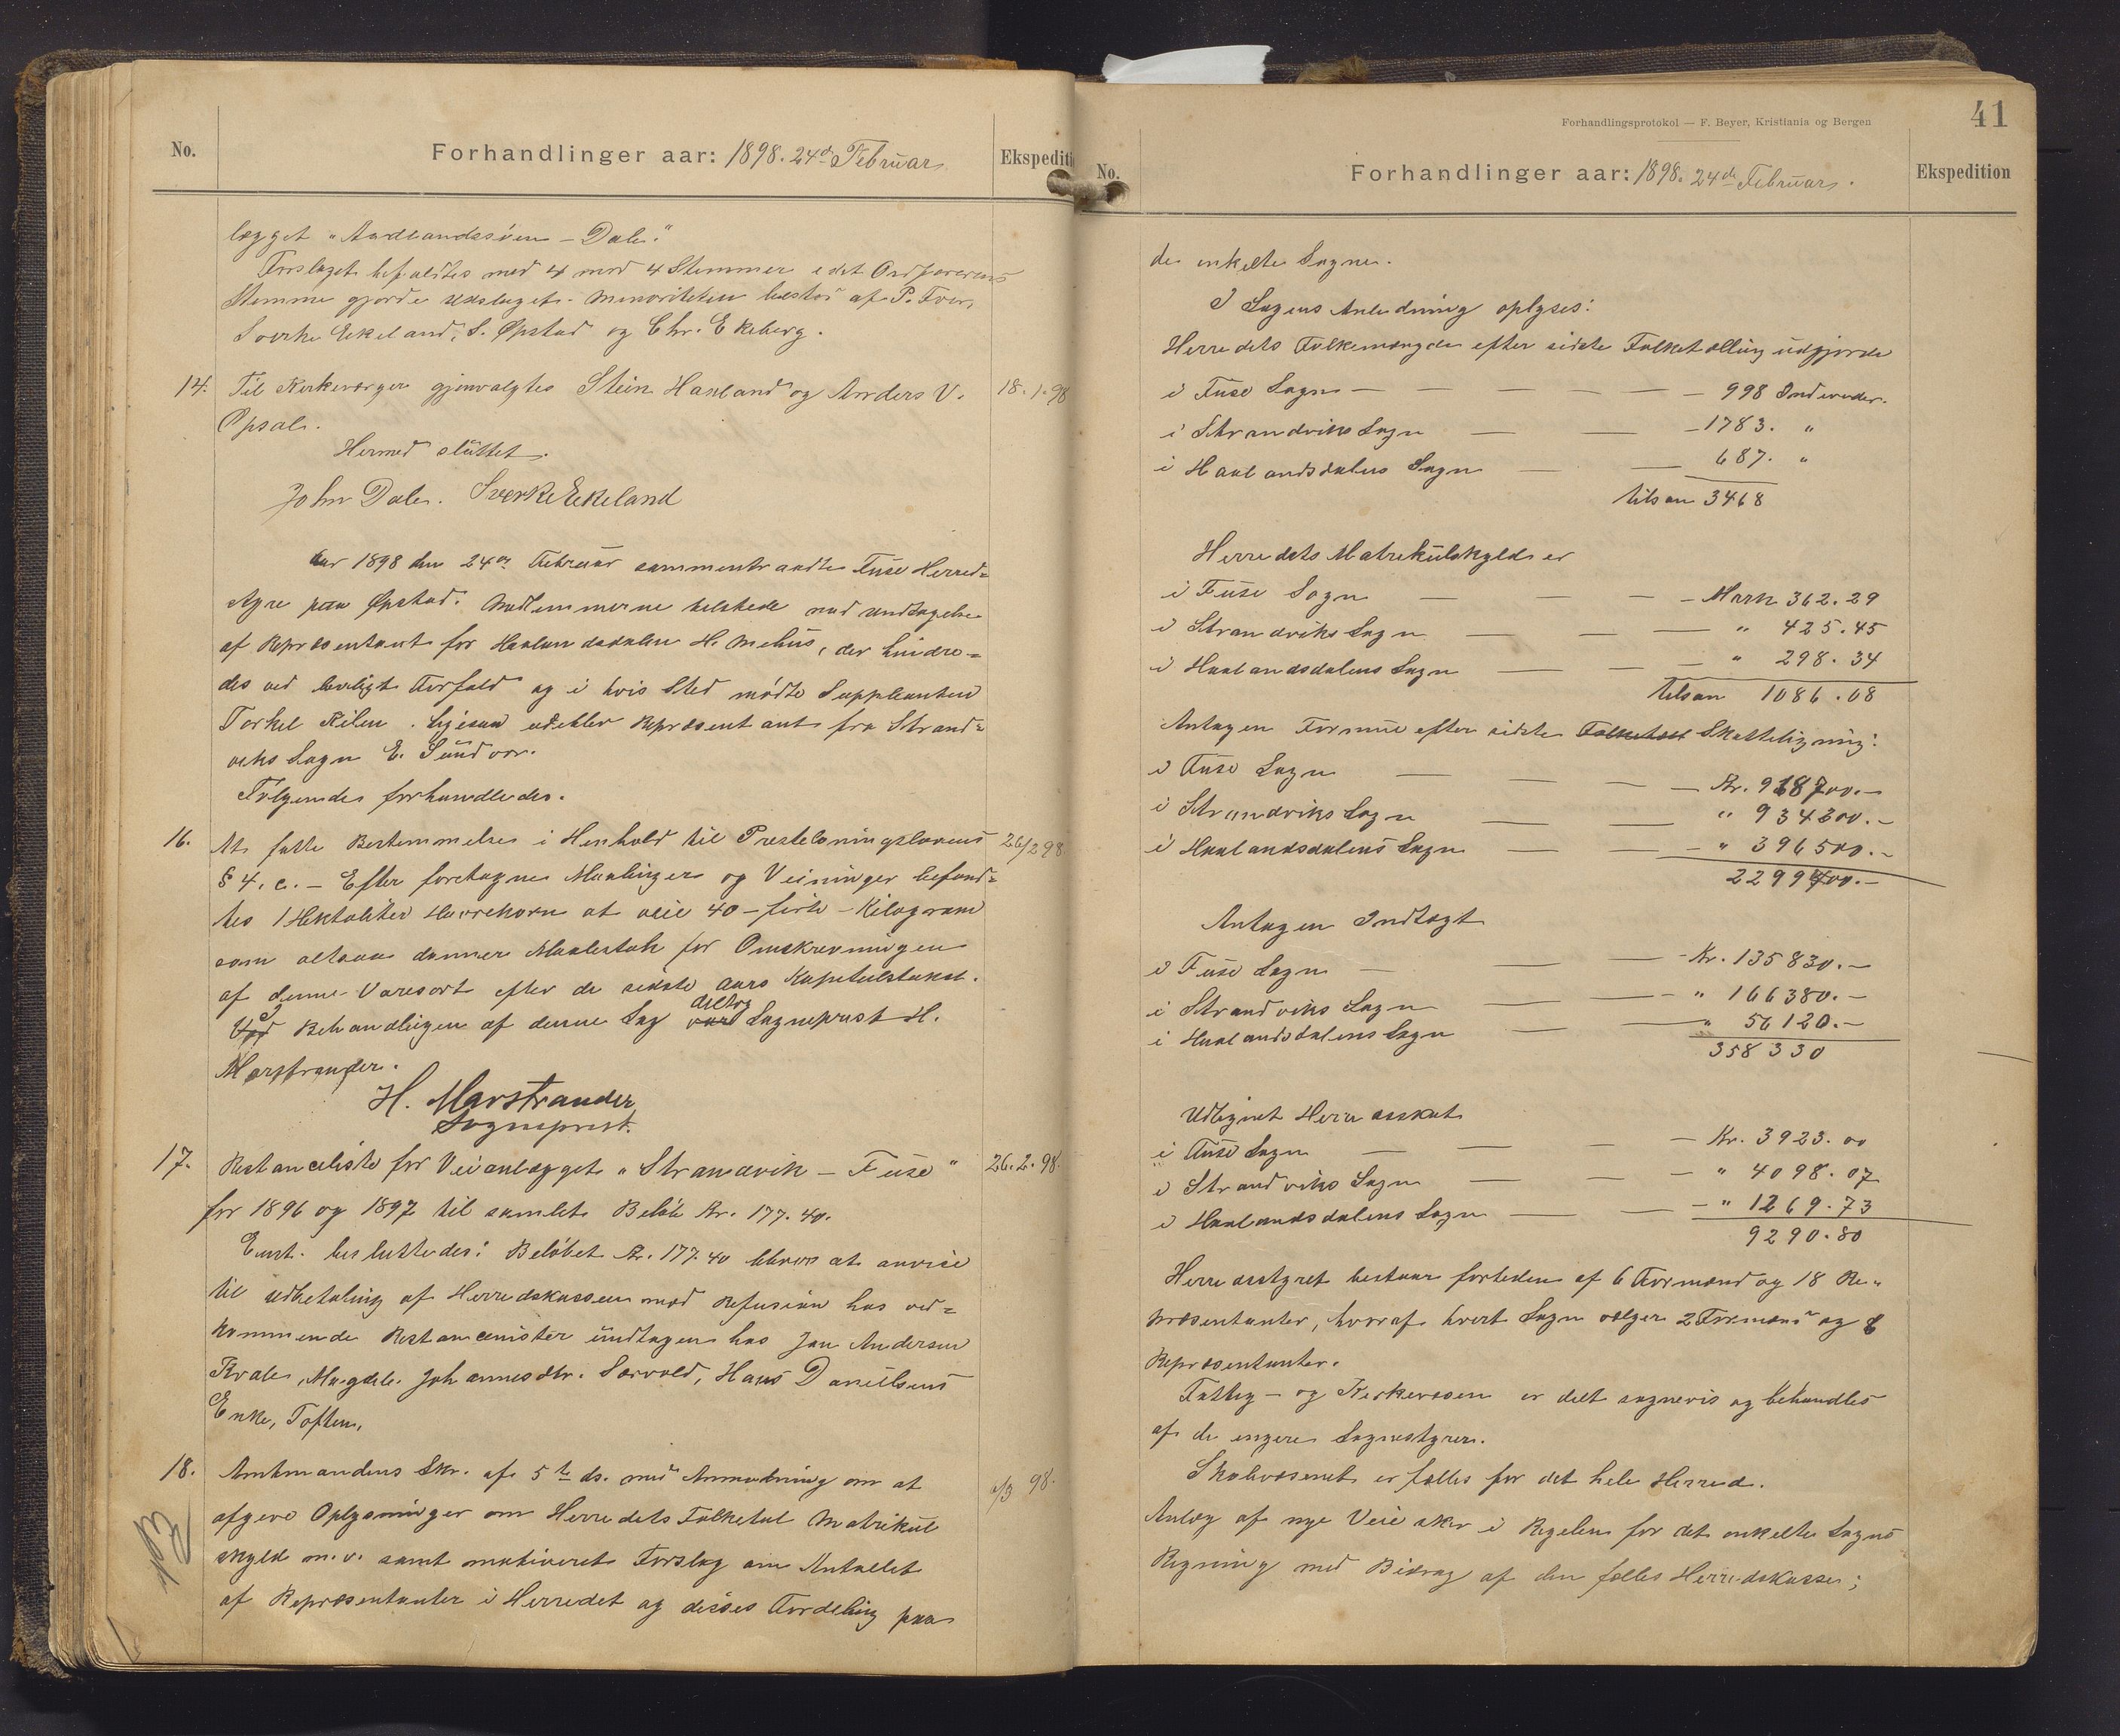 No.
Forhandlinger aar: 1898. 24de Februar.
Ekspediti
lægget "Aadlandssøen - Dale."
Forslaget befaldtes med 4 mod 4 Stemmer idet Ordførerens
Stemme gjorde Udslaget. Minoriteten bestod af P. Tver,
Sverke Eikeland, S. Øpstad og Chr. Ekeberg.
14. Til Kirkeværger gjenvalgtes Stein Haaland og Anders V. 18.1.98
Opsal.
Hermed sluttet.
John Dale. Sverke Eekeland
Aar 1898 den 24de Februar sammentraadte Fuse Herred=
styre paa Øpstad. Medlemmerne tilstede med Undtagelse
af Repræsentant for Haalandsdalen H. Mehus, der hindre=
des ved lovligt Forfald og i hvis Sted mødte Suppleanten
Torkel Kilen. Ligesaa udeblev Repræsentant fra Strand=
viks Sogn E. Sundvor.
Følgendes forhandledes.
16. At fatte Bestemmelse i Henhold til Presteløningslovens 26/2 98.
§ 4. c. - Efter foretagne Maalinger og Veininger befand=
tes 1 Hektoliter Havrekorn at veie 40 - firti - Kilogram
som altsaa danner Maalestok for Omskrivningen
af denne Varesort efter de sidste Aars Kapitelstakst.
I Behandlingen af denne Sag deltog Sogneprest H.
Marstrander.
H. Marstrander
Sogneprest.
17. Restanceliste for Veianlægget "Strandvik - Fuse" 26.2.98.
for 1896 og 1897 til samlet Beløb Kr. 177.40.
Enst. besluttedes: Beløbet Kr. 177.40 bliver at anvise
til Udbetaling af Herredskassen mod Refusion hos ved=
kommende Restancenister undtagen hos Jan Andersen
Kvale, Magdel. Johannesdtr. Sævold, Hans Danielsens
Enke, Toften,
18. Amtmandens Skr. af 5te ds. med Anmodning om at /3 98.
afgive Oplysninger om Herredets Folketal Matrikul
skyld m. v. samt motiveret Forslag om Antallet
af Repræsentanter i Herredet og disses Fordeling paa
Forhandlingsprotokol — F. Beyer, Kristiania og Bergen
41
No.
Forhandlinger aar: 1898. 24de Februar.
Ekspedition
de enkelte Sogne.
I Sagens Anledning oplyses:
Herredets Folkemængde efter sidste Folketælling udgjorde
i Fuse Sogn — — — — — 998 Individer.
i Strandviks Sogn — — — 1783. "
i Haalandsdalens Sogn — — 687. "
tilsam 3468
Herredets Matrikulskyld er
i Fuse Sogn — — — — Mark 362.29
i Strandviks Sogn — — — " 425.45
i Haalandsdalens Sogn — — — " 298.34
tilsam 1086.08
Antagen Formue efter sidste Folketæll Skatteligning:
i Fuse Sogn — — — — Kr. 968700.-
i Strandviks Sogn — — " 934300.-
i Haalandsdalens Sogn — — — " 396500.-
2299400.-
Antagen Indtægt
i Fuse Sogn — — — Kr. 135830.-
i Strandviks Sogn — — — " 166380.-
i Haalandsdalens Sogn — — " 56120.-
358330
Udlignet Herredsskat
i Fuse Sogn — — — — Kr. 3923.00
i Strandviks Sogn — — — " 4098.07
i Haalandsdalens Sogn — — — " 1269.73
9290.80
Herredsstyret bestaar fortiden af 6 Formænd og 18 Re=
præsentanter, hvoraf hvert Sogn vælger 2 Formænd og 6
Repræsentanter.
Fattig- og Kirkevæsen er delt sognevis og behandles
af de engere Sognestyrer.
Skolevæsenet er fælles for det hele Herred.
Anlæg af nye Veie sker i Regelen for det enkelte Sogns
Regning med Bidrag af den fælles Herredskasse;